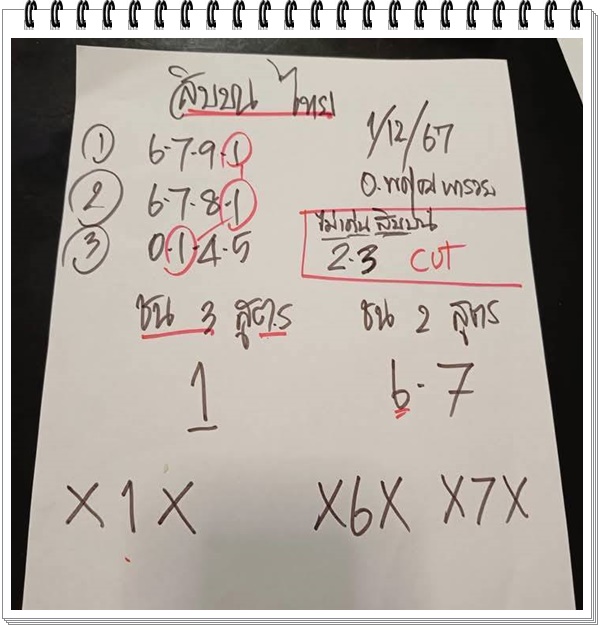 สิบบน ไทย
1/12/67
① 6-7-9-1
② 6-7-8-1
③ 0-1-4-5
ไม่เด่นสิบบน
2-3 CUT
ชน 3 สูตร
1
ชน 2 สูตร
6-7
X1X
X6X X7X